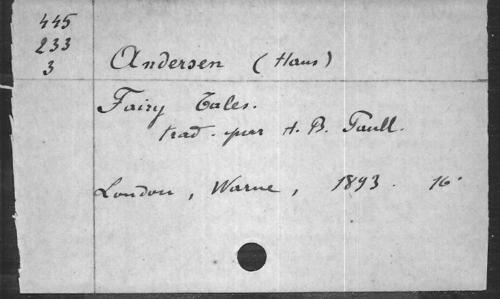 445
233
3
Andersen (Hans)
Fairy Tales.
trad. par H. B. Paull.
London, Warne, 1893. 16°